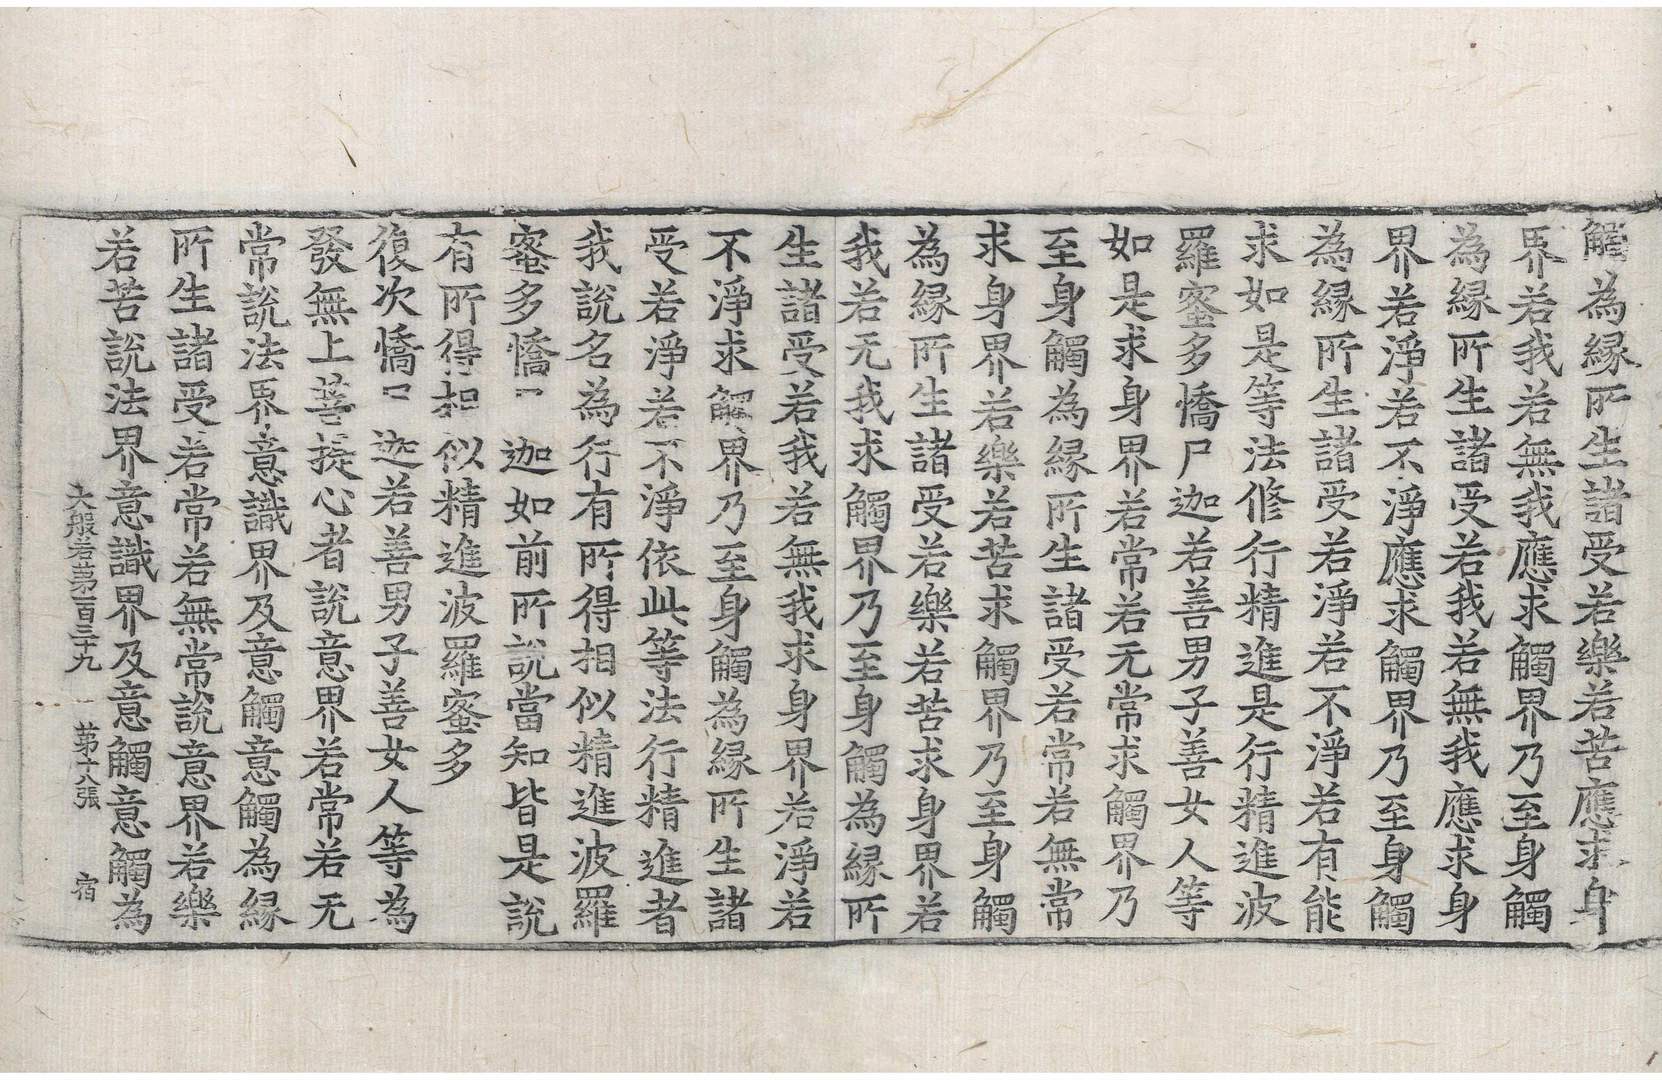 觸為縁所生諸受若樂若苦應求身
界若我若無我應求觸界乃至身觸
為縁所生諸受若我若無我應求身
界若淨若不淨應求觸界乃至身觸
為縁所生諸受若淨若不淨若有能
求如是等法修行精進是行精進波
羅蜜多憍尸迦若善男子善女人等
如是求身界若常若无常求觸界乃
至身觸為縁所生諸受若常若無常
求身界若樂若苦求觸界乃至身觸
為縁所生諸受若樂若苦求身界若
我若无我求觸界乃至身觸為縁所
生諸受若我若無我求身界若淨若
不淨求觸界乃至身觸為縁所生諸
受若淨若不淨依此等法行精進者
我說名為行有所得相似精進波羅
蜜多憍 迦如前所說當知皆是說
有所得相似精進波羅蜜多
復次憍 迦若善男子善女人等為
發無上菩提心者說意界若常若无
常說法界意識界及意觸意觸為縁
所生諸受若常若無常說意界若樂
若苦說法界意識界及意觸意觸為
大般若第一百三十九 第十八張 宿